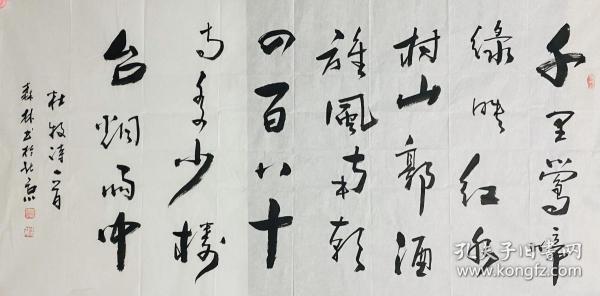 千里鶯啼
绿映红水
村山郭酒
旗風南朝
四百八十
寺多少楼
台烟雨中
杜牧诗一首
森林书於北京
孔夫子旧书网
www.kongfz.com